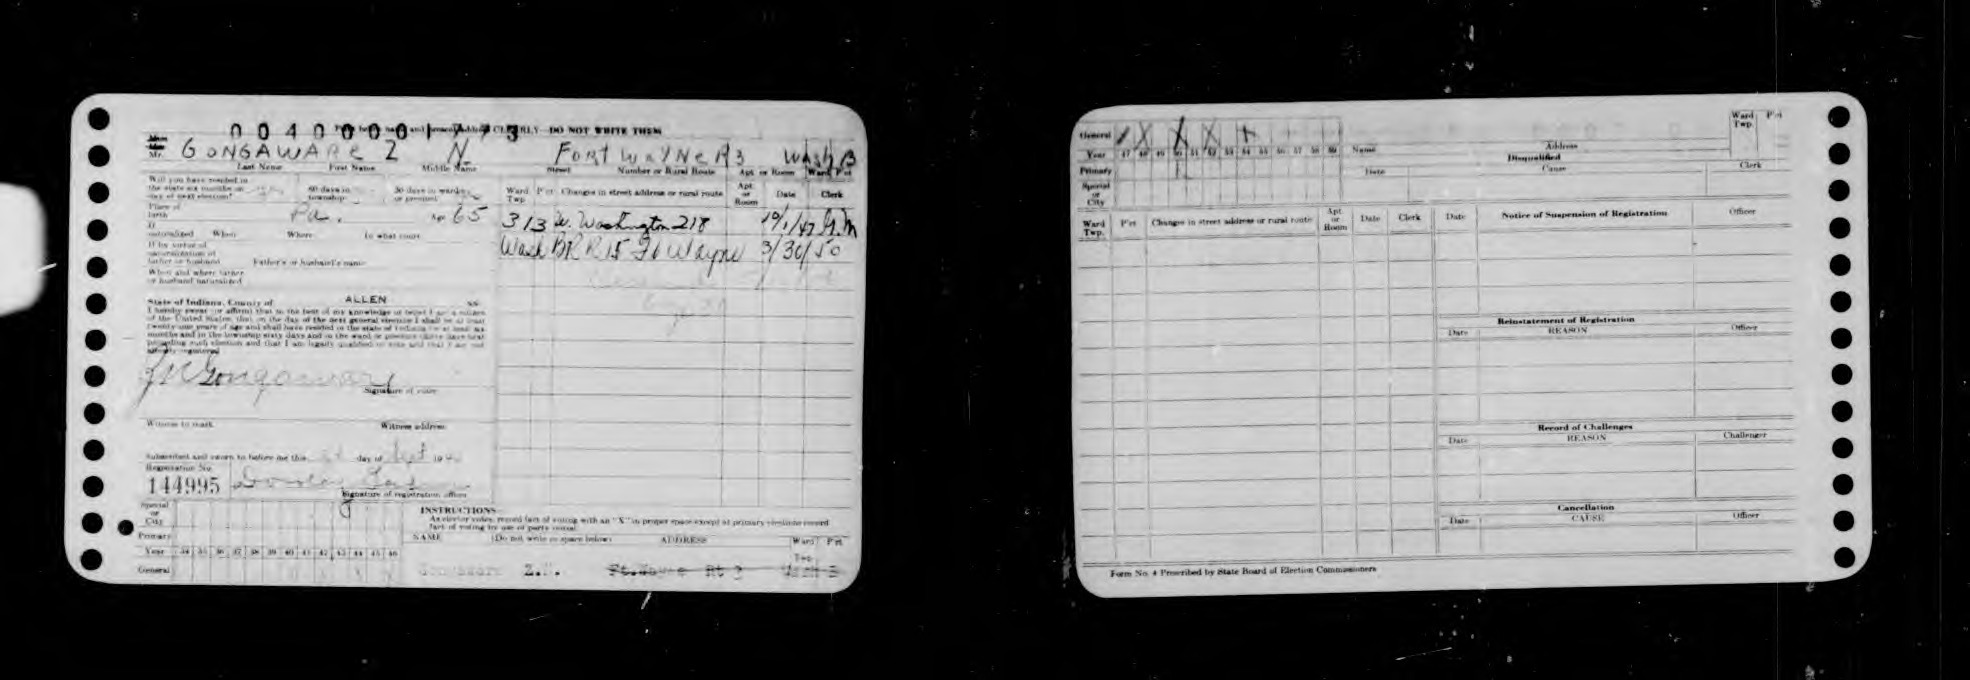 0040000 773
CLEARLY DO NOT WRITE THEM
Mr. GONGAWARE Z N. FORT WAYNE R3 WASH B
Last Name First Name Middle Name Street Number or Rural Route Apt. or Room Ward P'ct
Will you have resided in
the state six months on 60 days in 30 days in ward
day of next election? township or precinct
Place of
birth Pa. Age 65
If
naturalized When Where In what court
If by virtue of
naturalization of
father or husband Father's or husband's name
When and where father
or husband naturalized
State of Indiana, County of ALLEN SS:
I hereby swear (or affirm) that to the best of my knowledge or belief I am a citizen
of the United States, that on the day of the next general election I shall be at least
twenty-one years of age and shall have resided in the state of Indiana for at least six
months and in the township sixty days and in the ward or precinct thirty days next
preceding such election and that I am legally qualified to vote and that I am not
already registered
Z N Gongaware
Signature of voter
Witness to mark Witness address
Subscribed and sworn to before me this day of Sept 194
Registration No.
144995
Signature of registration officer
Ward Twp P'ct Changes in street address or rural route Apt. or Room Date Clerk
313 W. Washington 218 10/1/47 G.M
Wash B R R 15 Ft Wayne 3/30/50
Special
or
City
Primary
Year 34 35 36 37 38 39 40 41 42 43 44 45 46
General
INSTRUCTIONS
As elector votes, record fact of voting with an "X" in proper space except at primary elections record
fact of voting by use of party initial
NAME (Do not write in space below) ADDRESS Ward Twp P'ct
Gongaware Z.N. Ft. Wayne Rt 3 Wash B
General X X X
Year 47 48 49 50 51 52 53 54 55 56 57 58 59
Primary
Special
or
City
Name Address Ward Twp. P'ct
Disqualified
Date Cause Clerk
Ward Twp. P'ct Changes in street address or rural route Apt or Room Date Clerk
Date Notice of Suspension of Registration Officer
Reinstatement of Registration
Date REASON Officer
Record of Challenges
Date REASON Challenger
Cancellation
Date CAUSE Officer
Form No. 4 Prescribed by State Board of Election Commissioners